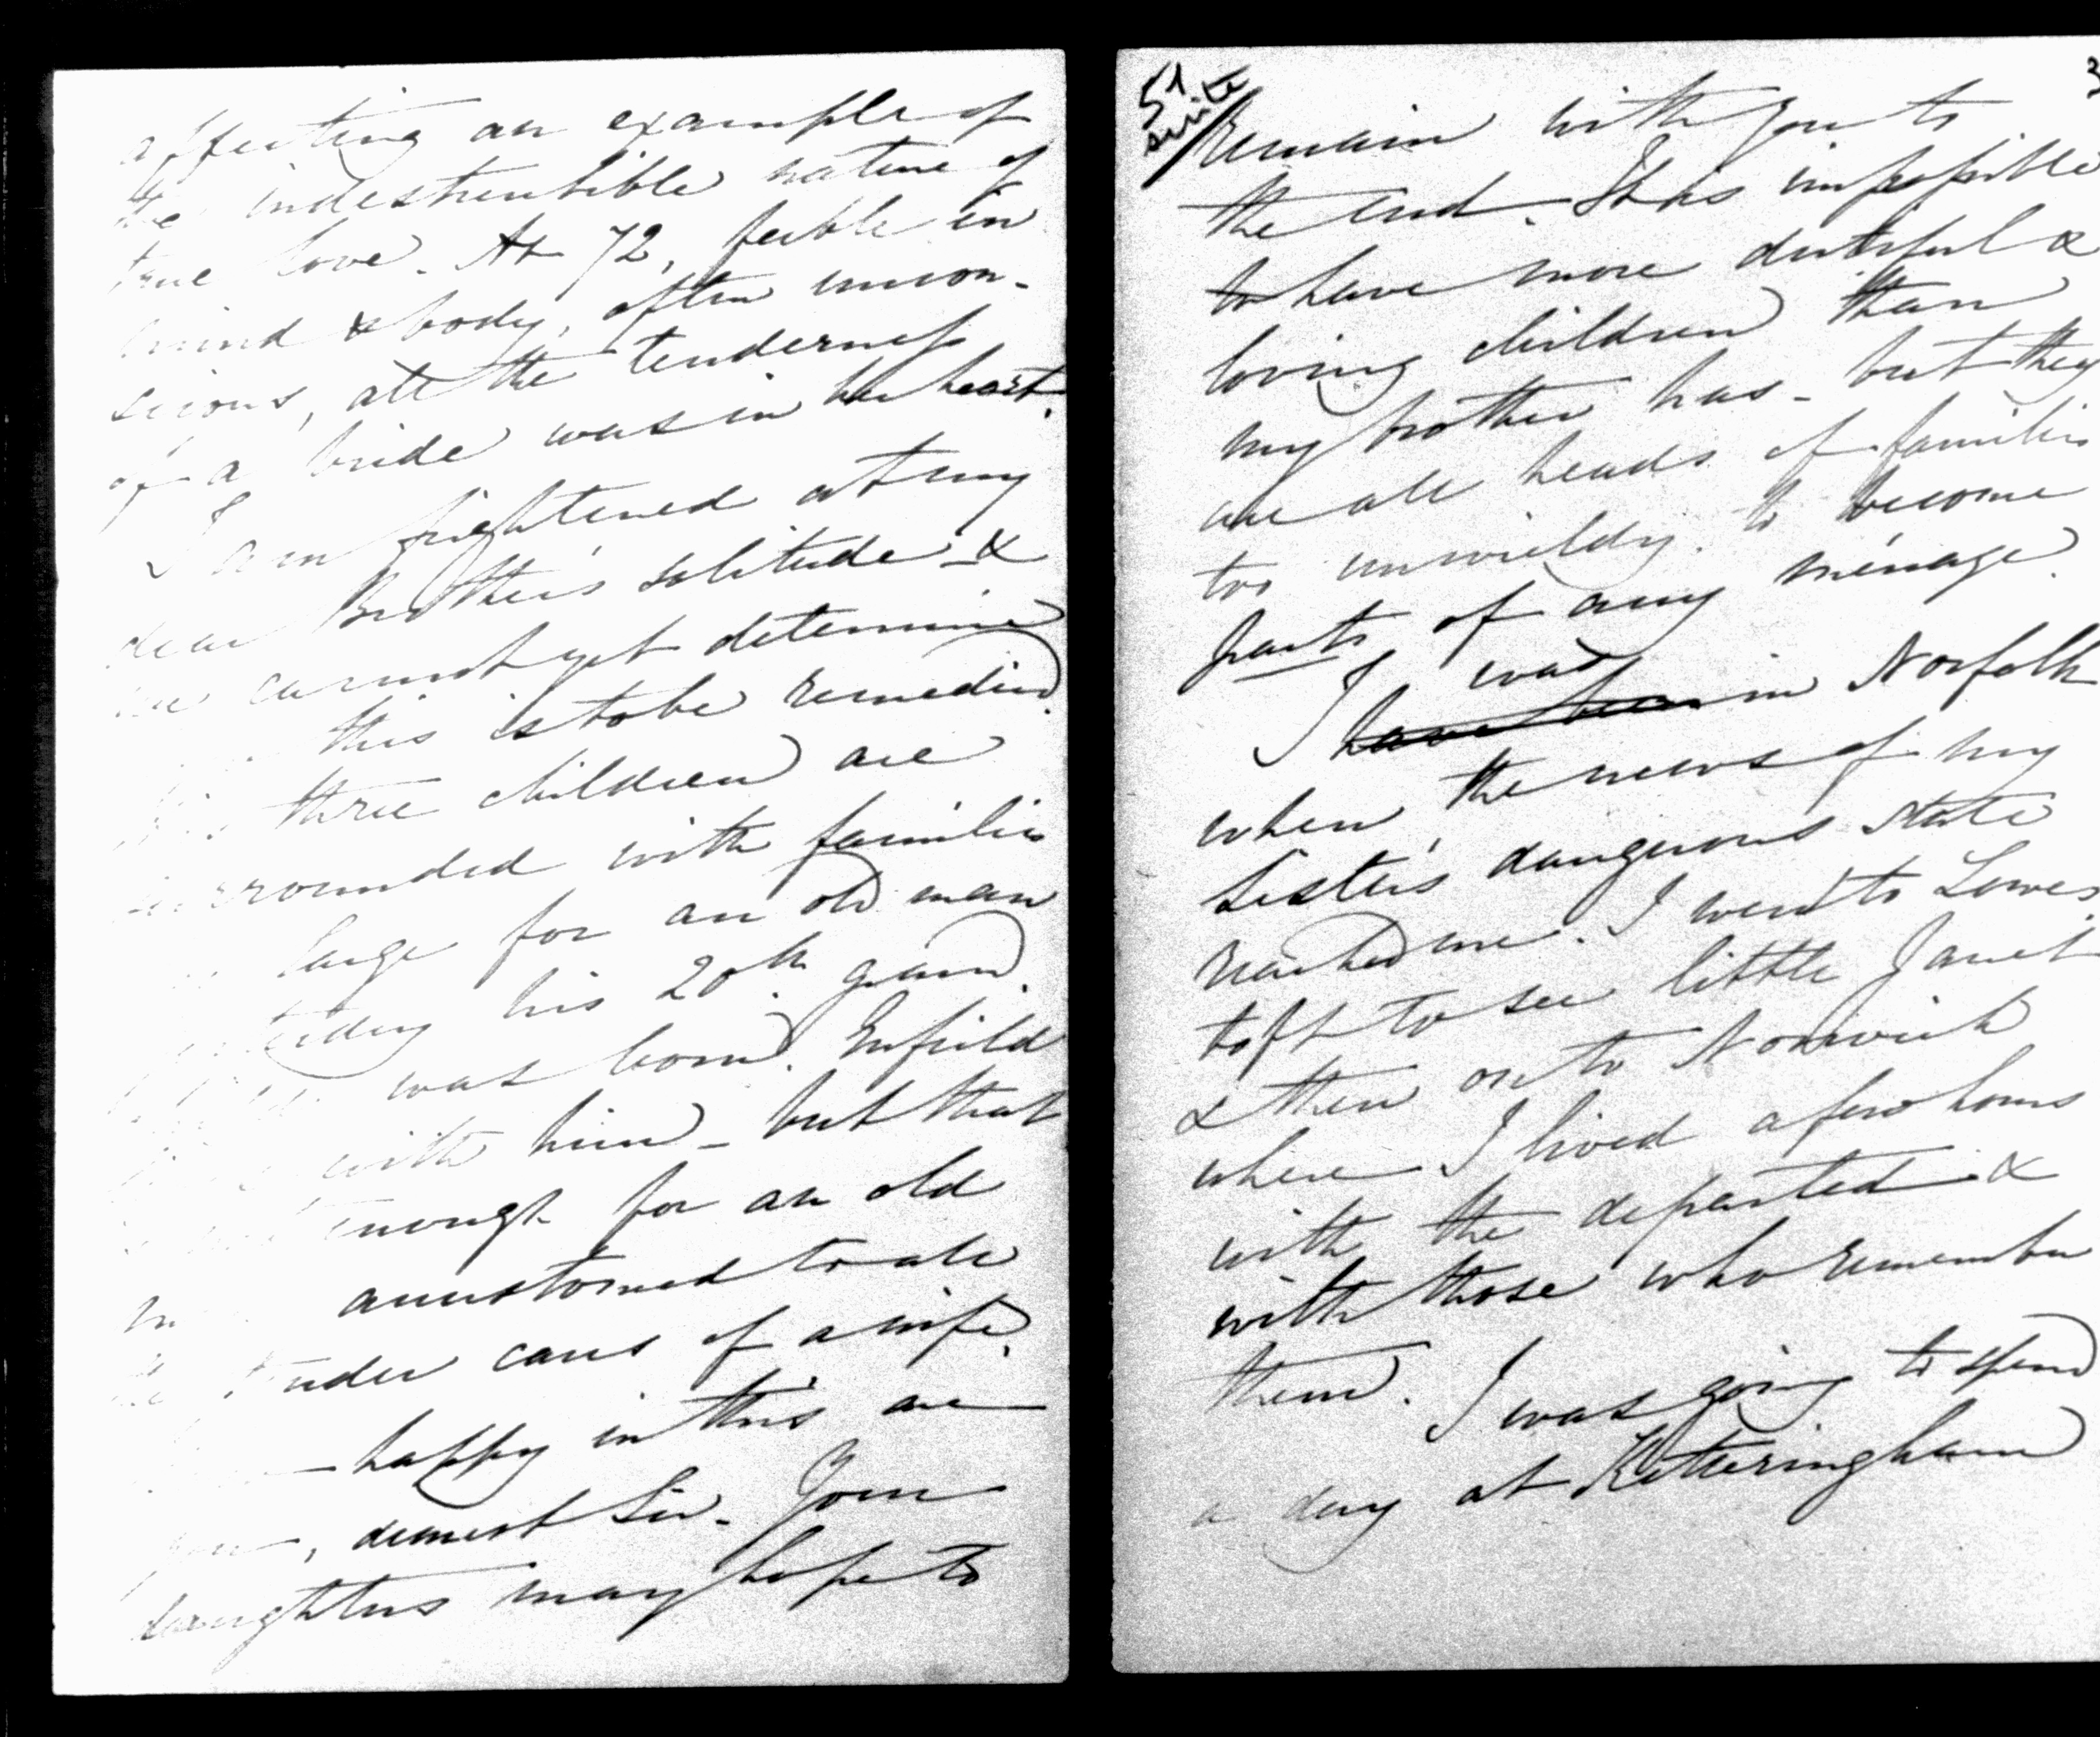 affecting an example of
the indestructible nature of
true love. At 72, feeble in
mind & body, often uncon-
scious, all the tenderness
of a bride was in her heart.
I am frightened at my
dear Brother's solitude &
we cannot yet determine
this is to be remedied.
His three children are
surrounded with families
large for an old man
his 20th grand
was born. Enfield
with him – but that
enough for an old
accustomed to all
the tender cares of a wife.
happy in this are
you, dearest Sir. Your
daughters may hope to
51
suite
3
remain with you to
the end. It is impossible
to have more dutiful &
loving children than
my brother has – but they
are all heads of families
too unwieldy to become
parts of any ménage.
I was
have been in Norfolk
when the news of my
Sister's dangerous state
reached me. I went to Lowes
toft to see little Janet
& then on to Norwich
where I lived a few hours
with the departed &
with those who remember
them. I was going to spend
a day at Ketteringham